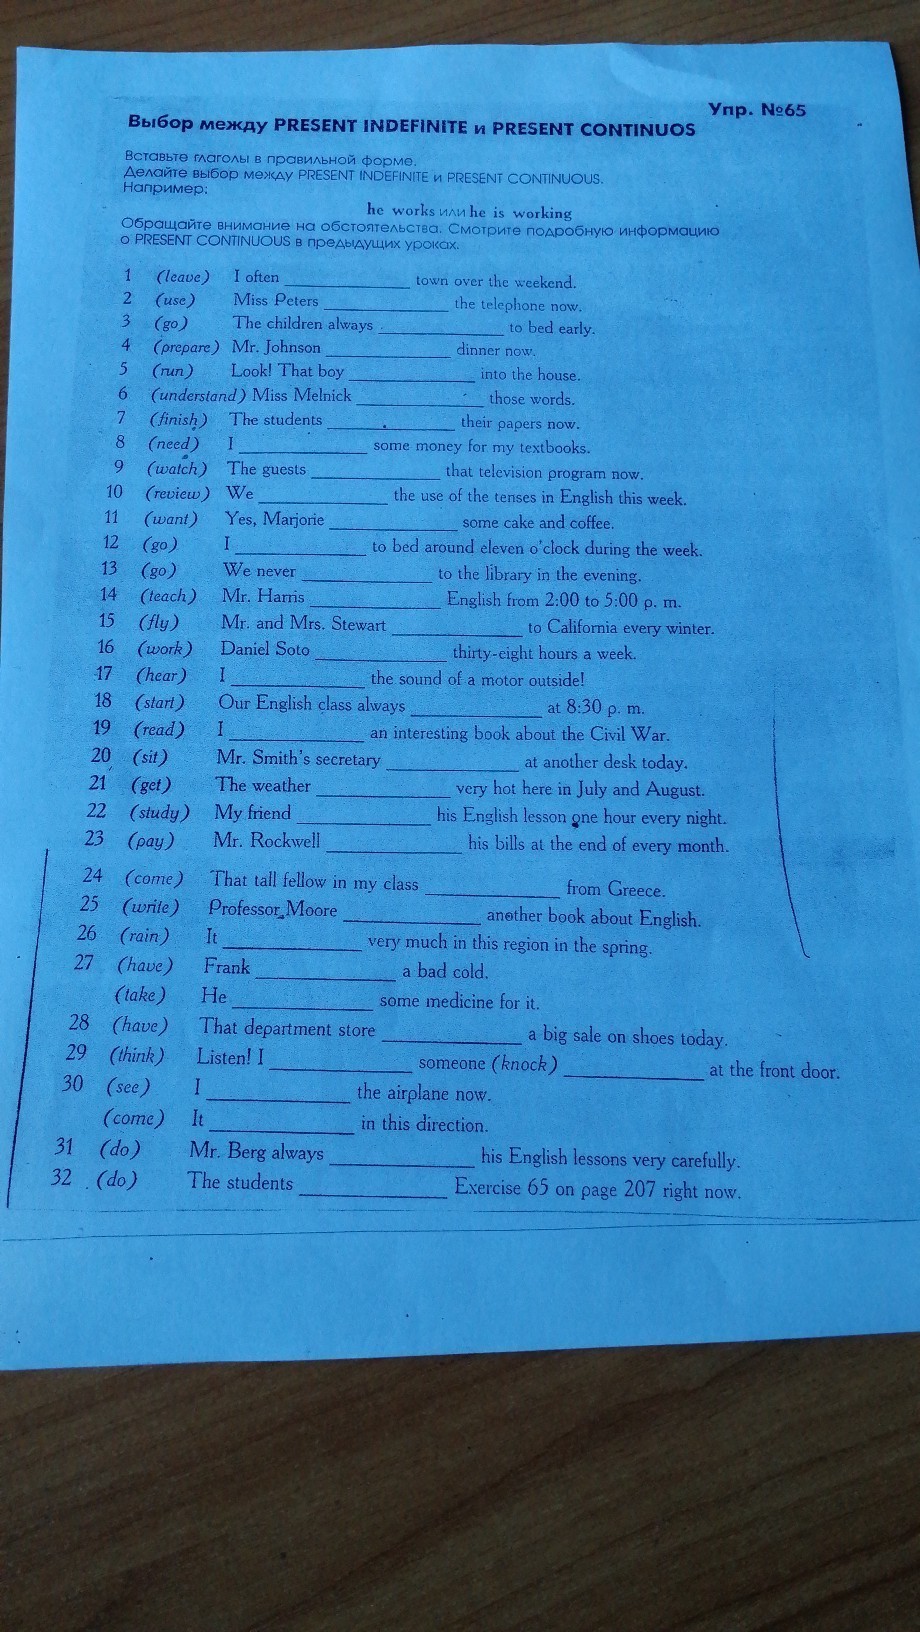 Упр. №65
Выбор между PRESENT INDEFINITE и PRESENT CONTINUOS
Вставьте глаголы в правильной форме.
Делайте выбор между PRESENT INDEFINITE и PRESENT CONTINUOUS.
Например:
he works или he is working
Обращайте внимание на обстоятельства. Смотрите подробную информацию
о PRESENT CONTINUOUS в предыдущих уроках.
1 (leave) I often ____________ town over the weekend.
2 (use) Miss Peters ____________ the telephone now.
3 (go) The children always ____________ to bed early.
4 (prepare) Mr. Johnson ____________ dinner now.
5 (run) Look! That boy ____________ into the house.
6 (understand) Miss Melnick ____________ those words.
7 (finish) The students ____________ their papers now.
8 (need) I ____________ some money for my textbooks.
9 (watch) The guests ____________ that television program now.
10 (review) We ____________ the use of the tenses in English this week.
11 (want) Yes, Marjorie ____________ some cake and coffee.
12 (go) I ____________ to bed around eleven o'clock during the week.
13 (go) We never ____________ to the library in the evening.
14 (teach) Mr. Harris ____________ English from 2:00 to 5:00 p. m.
15 (fly) Mr. and Mrs. Stewart ____________ to California every winter.
16 (work) Daniel Soto ____________ thirty-eight hours a week.
17 (hear) I ____________ the sound of a motor outside!
18 (start) Our English class always ____________ at 8:30 p. m.
19 (read) I ____________ an interesting book about the Civil War.
20 (sit) Mr. Smith's secretary ____________ at another desk today.
21 (get) The weather ____________ very hot here in July and August.
22 (study) My friend ____________ his English lesson one hour every night.
23 (pay) Mr. Rockwell ____________ his bills at the end of every month.
24 (come) That tall fellow in my class ____________ from Greece.
25 (write) Professor Moore ____________ another book about English.
26 (rain) It ____________ very much in this region in the spring.
27 (have) Frank ____________ a bad cold.
(take) He ____________ some medicine for it.
28 (have) That department store ____________ a big sale on shoes today.
29 (think) Listen! I ____________ someone (knock) ____________ at the front door.
30 (see) I ____________ the airplane now.
(come) It ____________ in this direction.
31 (do) Mr. Berg always ____________ his English lessons very carefully.
32 (do) The students ____________ Exercise 65 on page 207 right now.